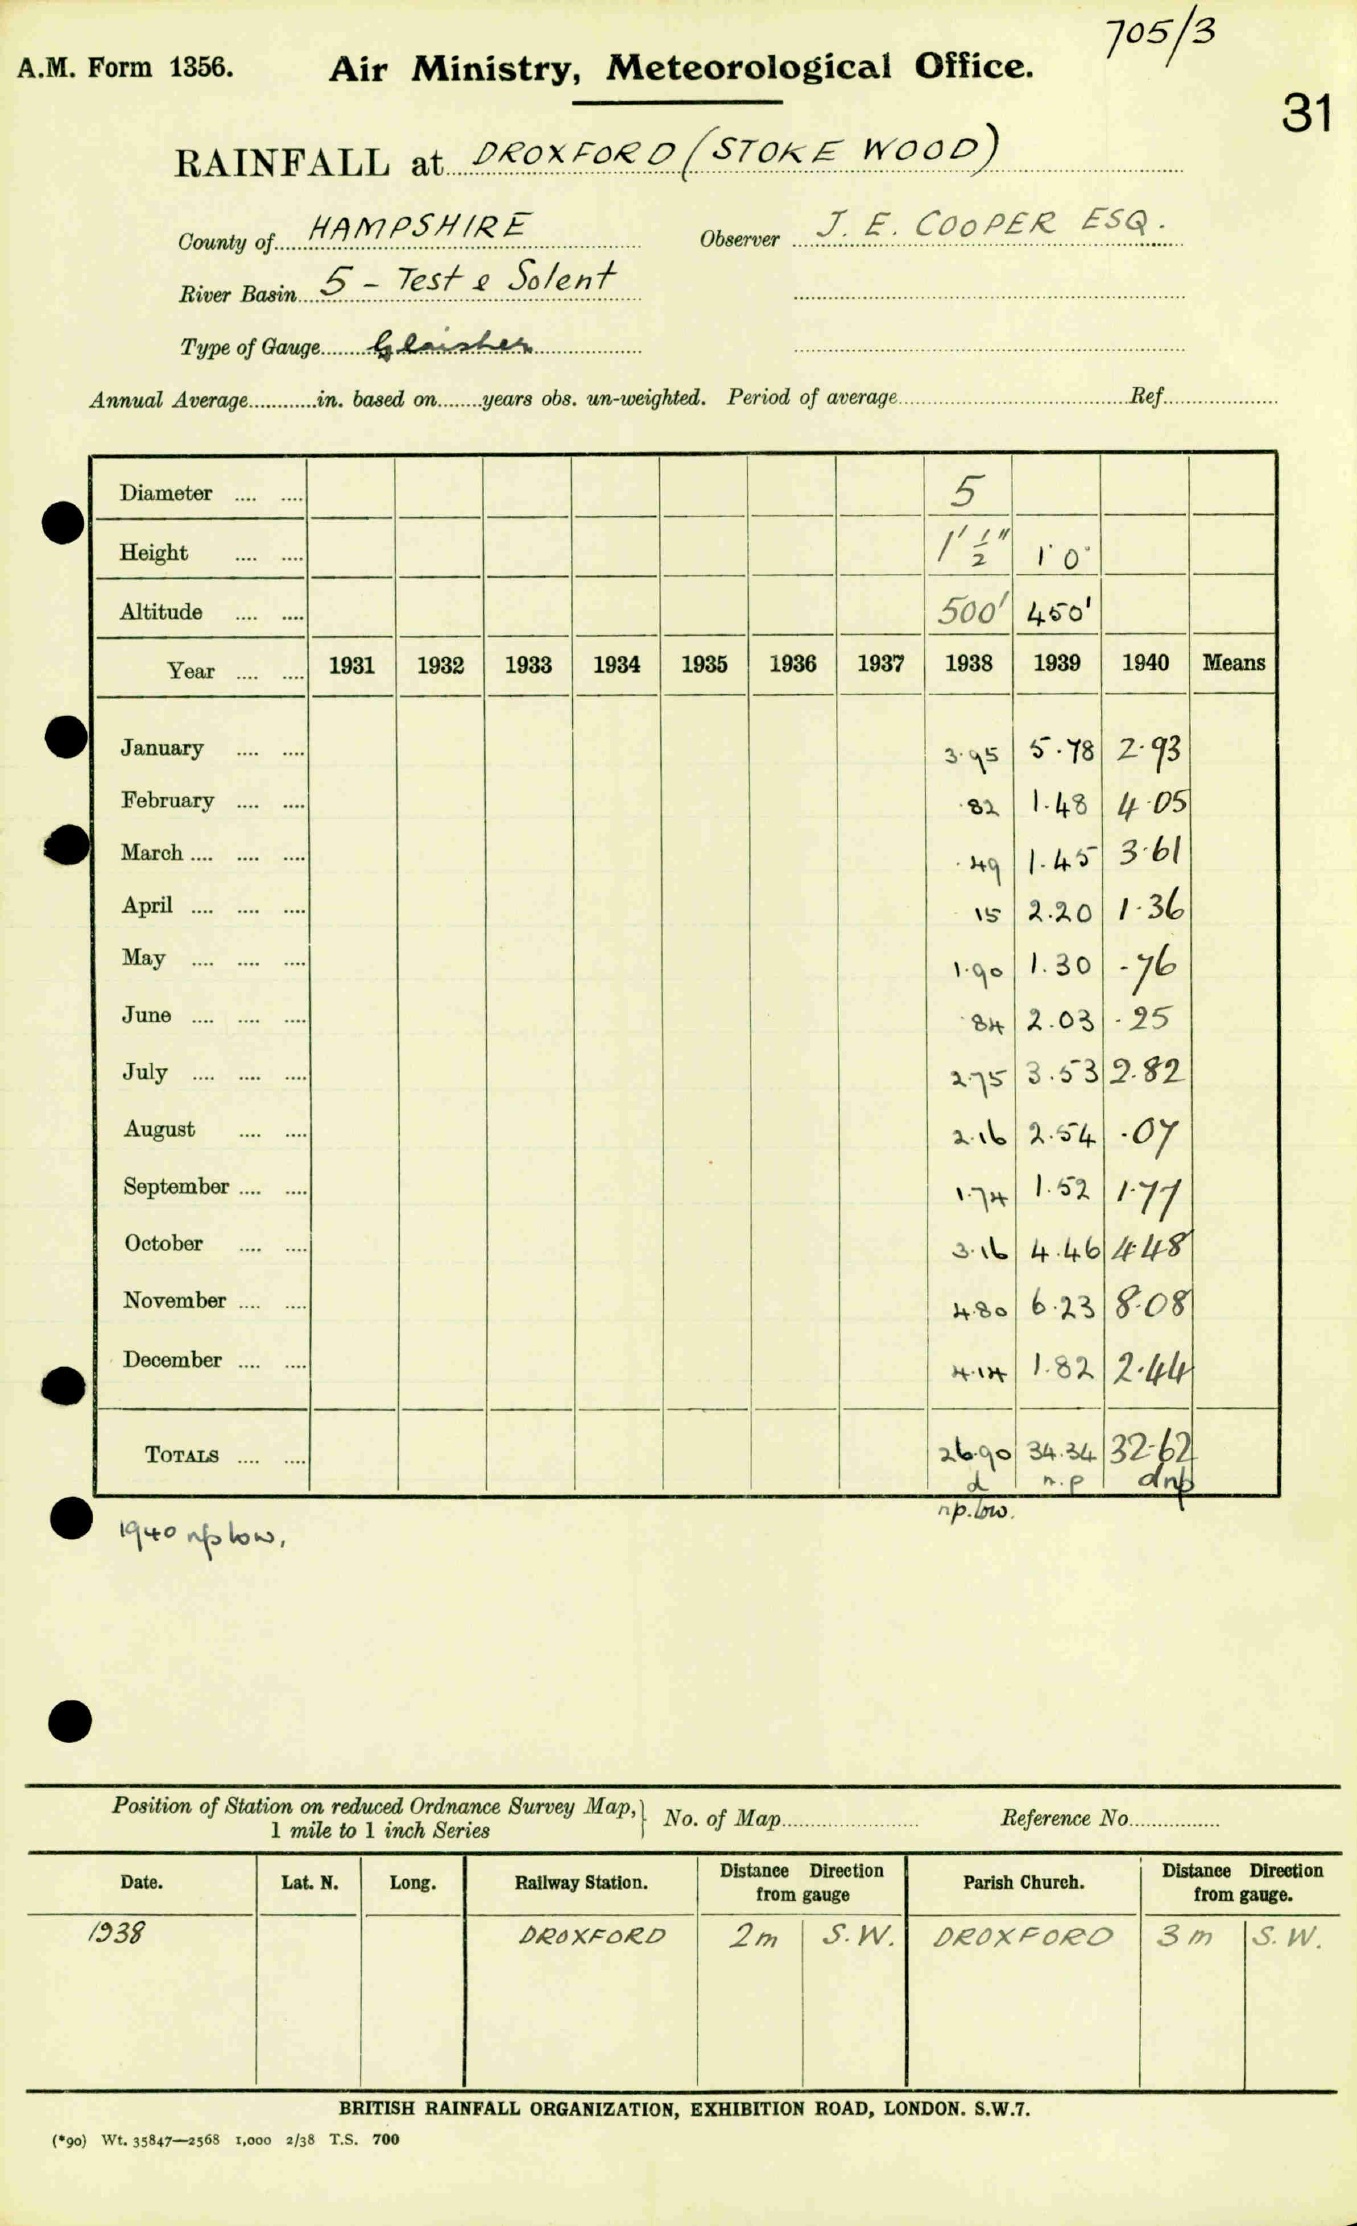 705/3
A.M. Form 1356. Air Ministry, Meteorological Office.
31
RAINFALL at DROXFORD (STOKE WOOD)
County of HAMPSHIRE Observer J. E. COOPER ESQ.
River Basin 5 - Test & Solent
Type of Gauge Glaisher
Annual Average............in. based on........years obs. un-weighted. Period of average.................... Ref....................
Diameter .... .... 5
Height .... .... 1' ½" 1' 0"
Altitude .... .... 500' 450'
Year .... .... 1931 1932 1933 1934 1935 1936 1937 1938 1939 1940 Means
January .... .... 3.95 5.78 2.93
February .... .... .82 1.48 4.05
March .... .... .... .49 1.45 3.61
April .... .... .... 15 2.20 1.36
May .... .... .... 1.90 1.30 .76
June .... .... .... .84 2.03 .25
July .... .... .... 2.75 3.53 2.82
August .... .... 2.16 2.54 .07
September .... .... 1.74 1.52 1.77
October .... .... 3.16 4.46 4.48
November .... .... 4.80 6.23 8.08
December .... .... 4.14 1.82 2.44
TOTALS .... .... 26.90 34.34 32.62
d n.p dnp
np.low.
1940 np low.
Position of Station on reduced Ordnance Survey Map, 1 mile to 1 inch Series } No. of Map.................... Reference No....................
Date. Lat. N. Long. Railway Station. Distance Direction from gauge Parish Church. Distance Direction from gauge.
1938 DROXFORD 2m S.W. DROXFORD 3m S.W.
BRITISH RAINFALL ORGANIZATION, EXHIBITION ROAD, LONDON. S.W.7.
(*90) Wt. 35847—2568 1,000 2/38 T.S. 700